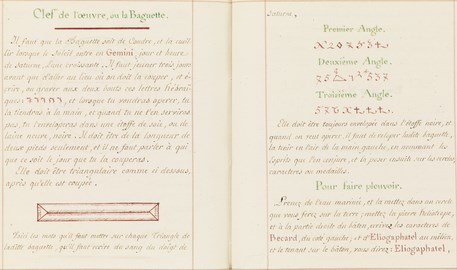 Clef de l'œuvre, ou la Baguette.
Il faut que la Baguette soit de Coudre, et la cueil-
lir lorsque le Soleil entre en Gemini; jour et heure
de Saturne, Luna croissante. Il faut jeuner trois jours
avant que d'aller au lieu où on doit la couper, et é-
crire, ou graver aux deux bouts ces lettres hébraï-
ques et lorsque tu voudras operer, tu
la tiendras à la main, et quand tu ne t'en serviras
pas, tu l'enveloperas dans une étoffe de soie, ou de
laine neuve, noire. Il doit être de la longueur de
deux pieds seulement, et il ne faut parler à qui
que ce soit le jour que tu la couperas.
Elle doit être triangulaire comme ci dessous,
après qu'elle est coupée.
Voici les mots qu'il faut mettre sur chaque Triangle de
ladite baguette; qu'il faut écrire du sang du doigt de
Saturne.
Premier Angle.
Deuxième Angle.
Troisième Angle.
Elle doit être toujours envelopée dans l'étoffe noire, et
quand on veut operer, il faut déveloper ladite baguette,
la tenir en l'air de la main gauche, en nommant les
Esprits que l'on conjure, et la puis ensuite sur les
caracteres ou medailles.
Pour faire pleuvoir.
Prenez de l'eau marine, et la mettez dans un cercle
que vous ferez sur la terre; mettez la pierre
à la partie droite du bâton, écrivez les caractères de
Becard; du coté gauche; et d'Eliogaphatel au milieu,
et le tenant sur le bâton, vous direz: Eliogaphatel,